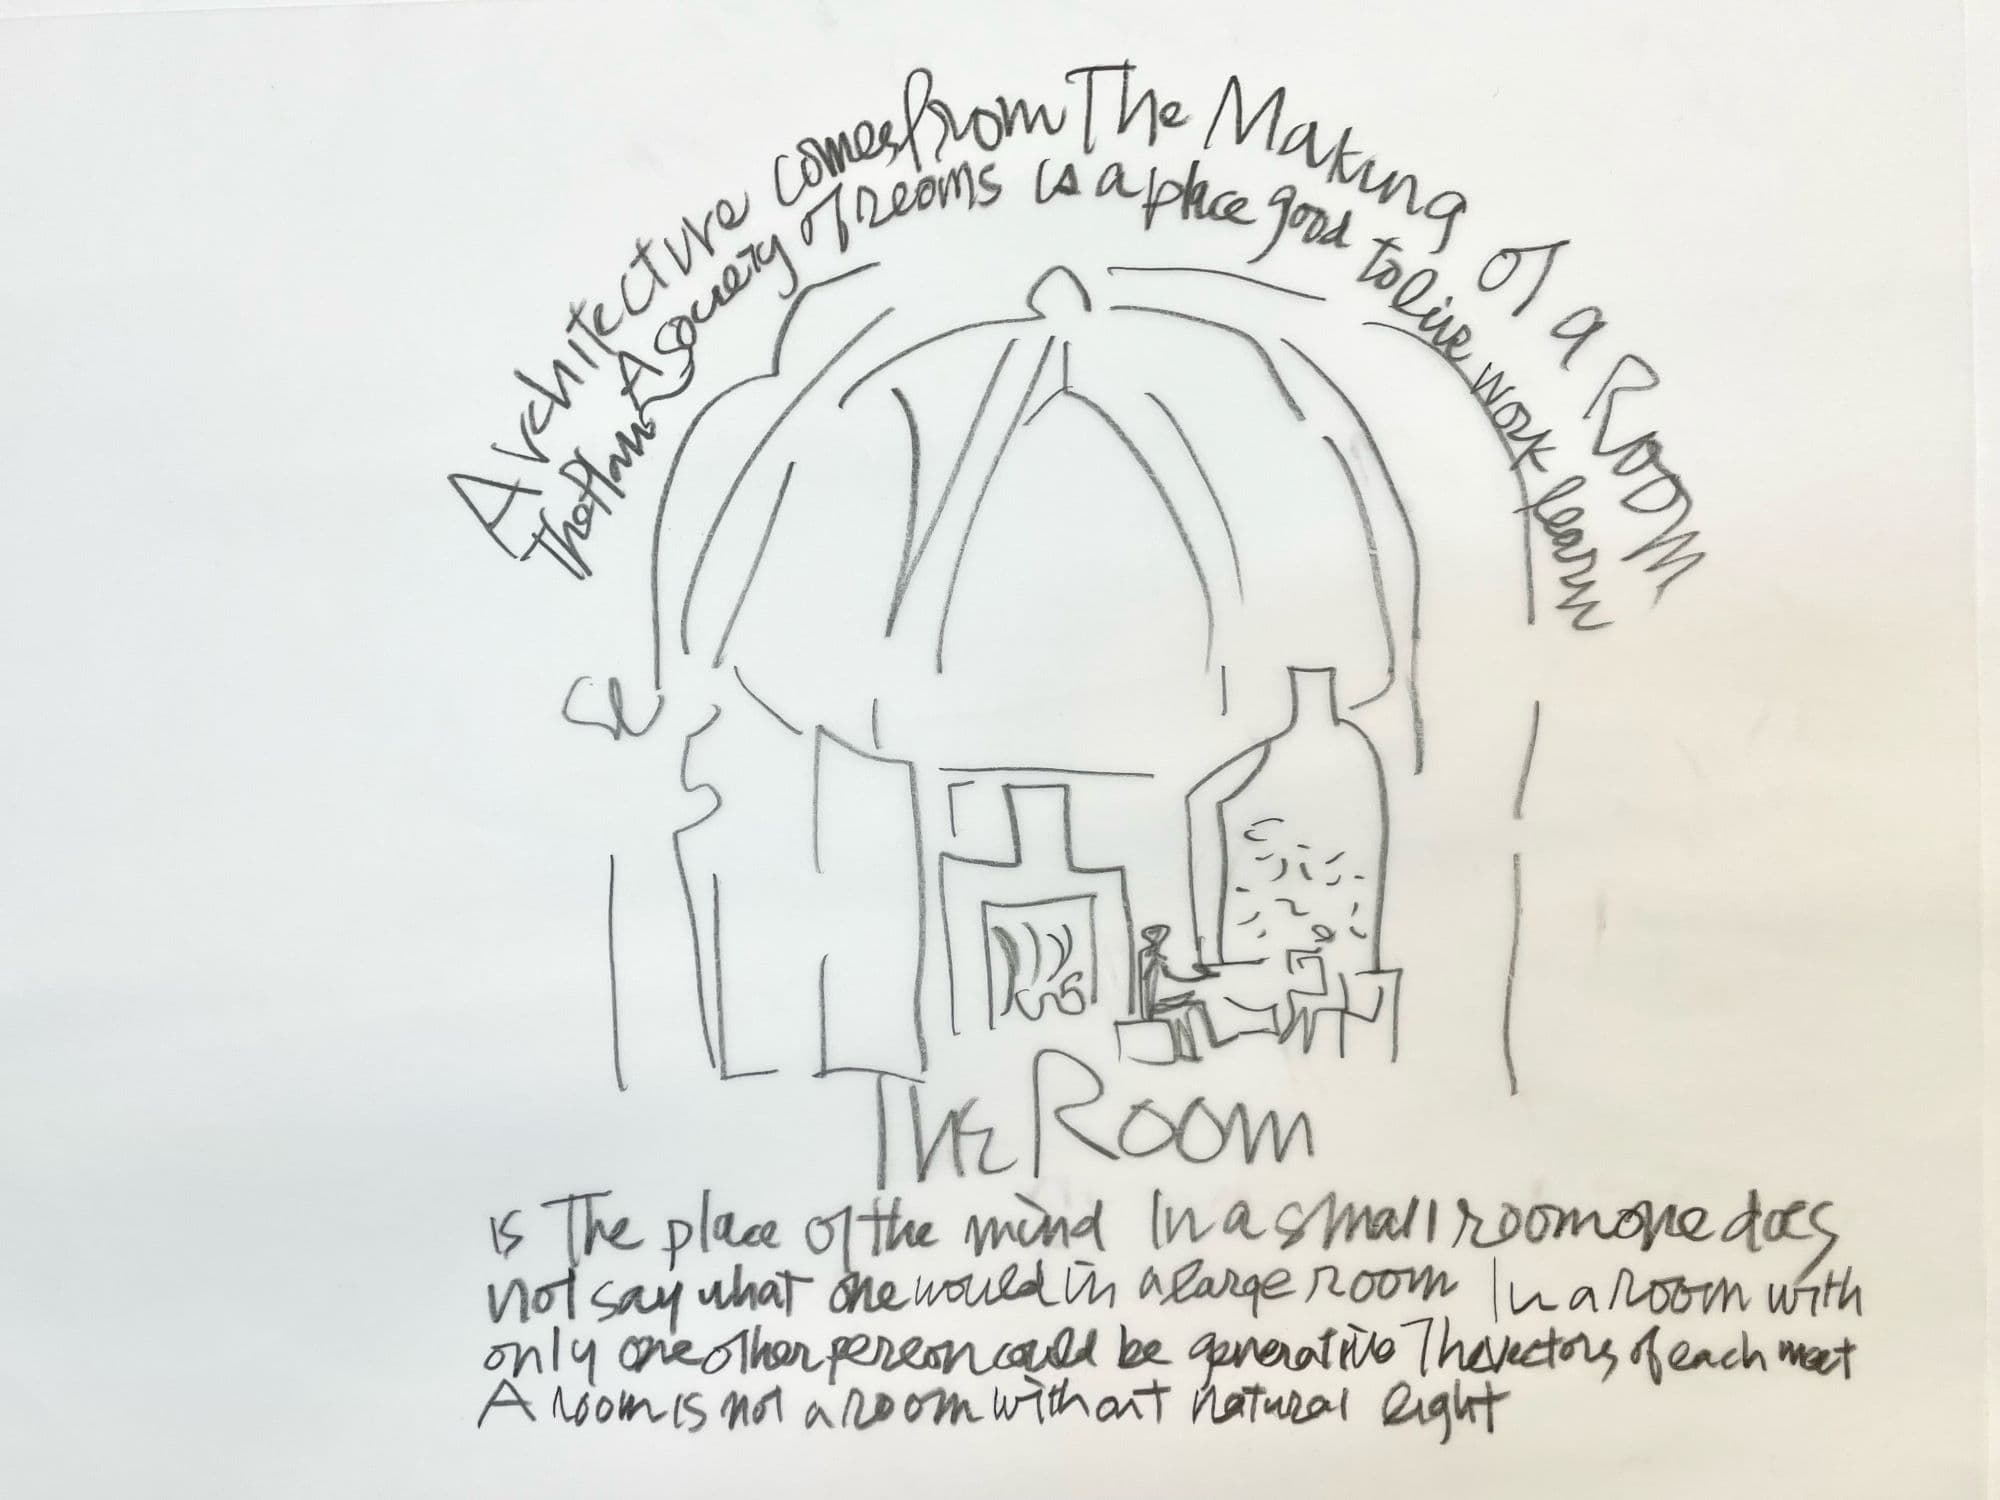 Architecture comes from The Making of a Room
The Plan A society of rooms is a place good to live work learn
The Room
is The place of the mind In a small room one does
not say what one would in a large room In a room with
only one other person could be generative The vectors of each meet
A room is not a room without natural light